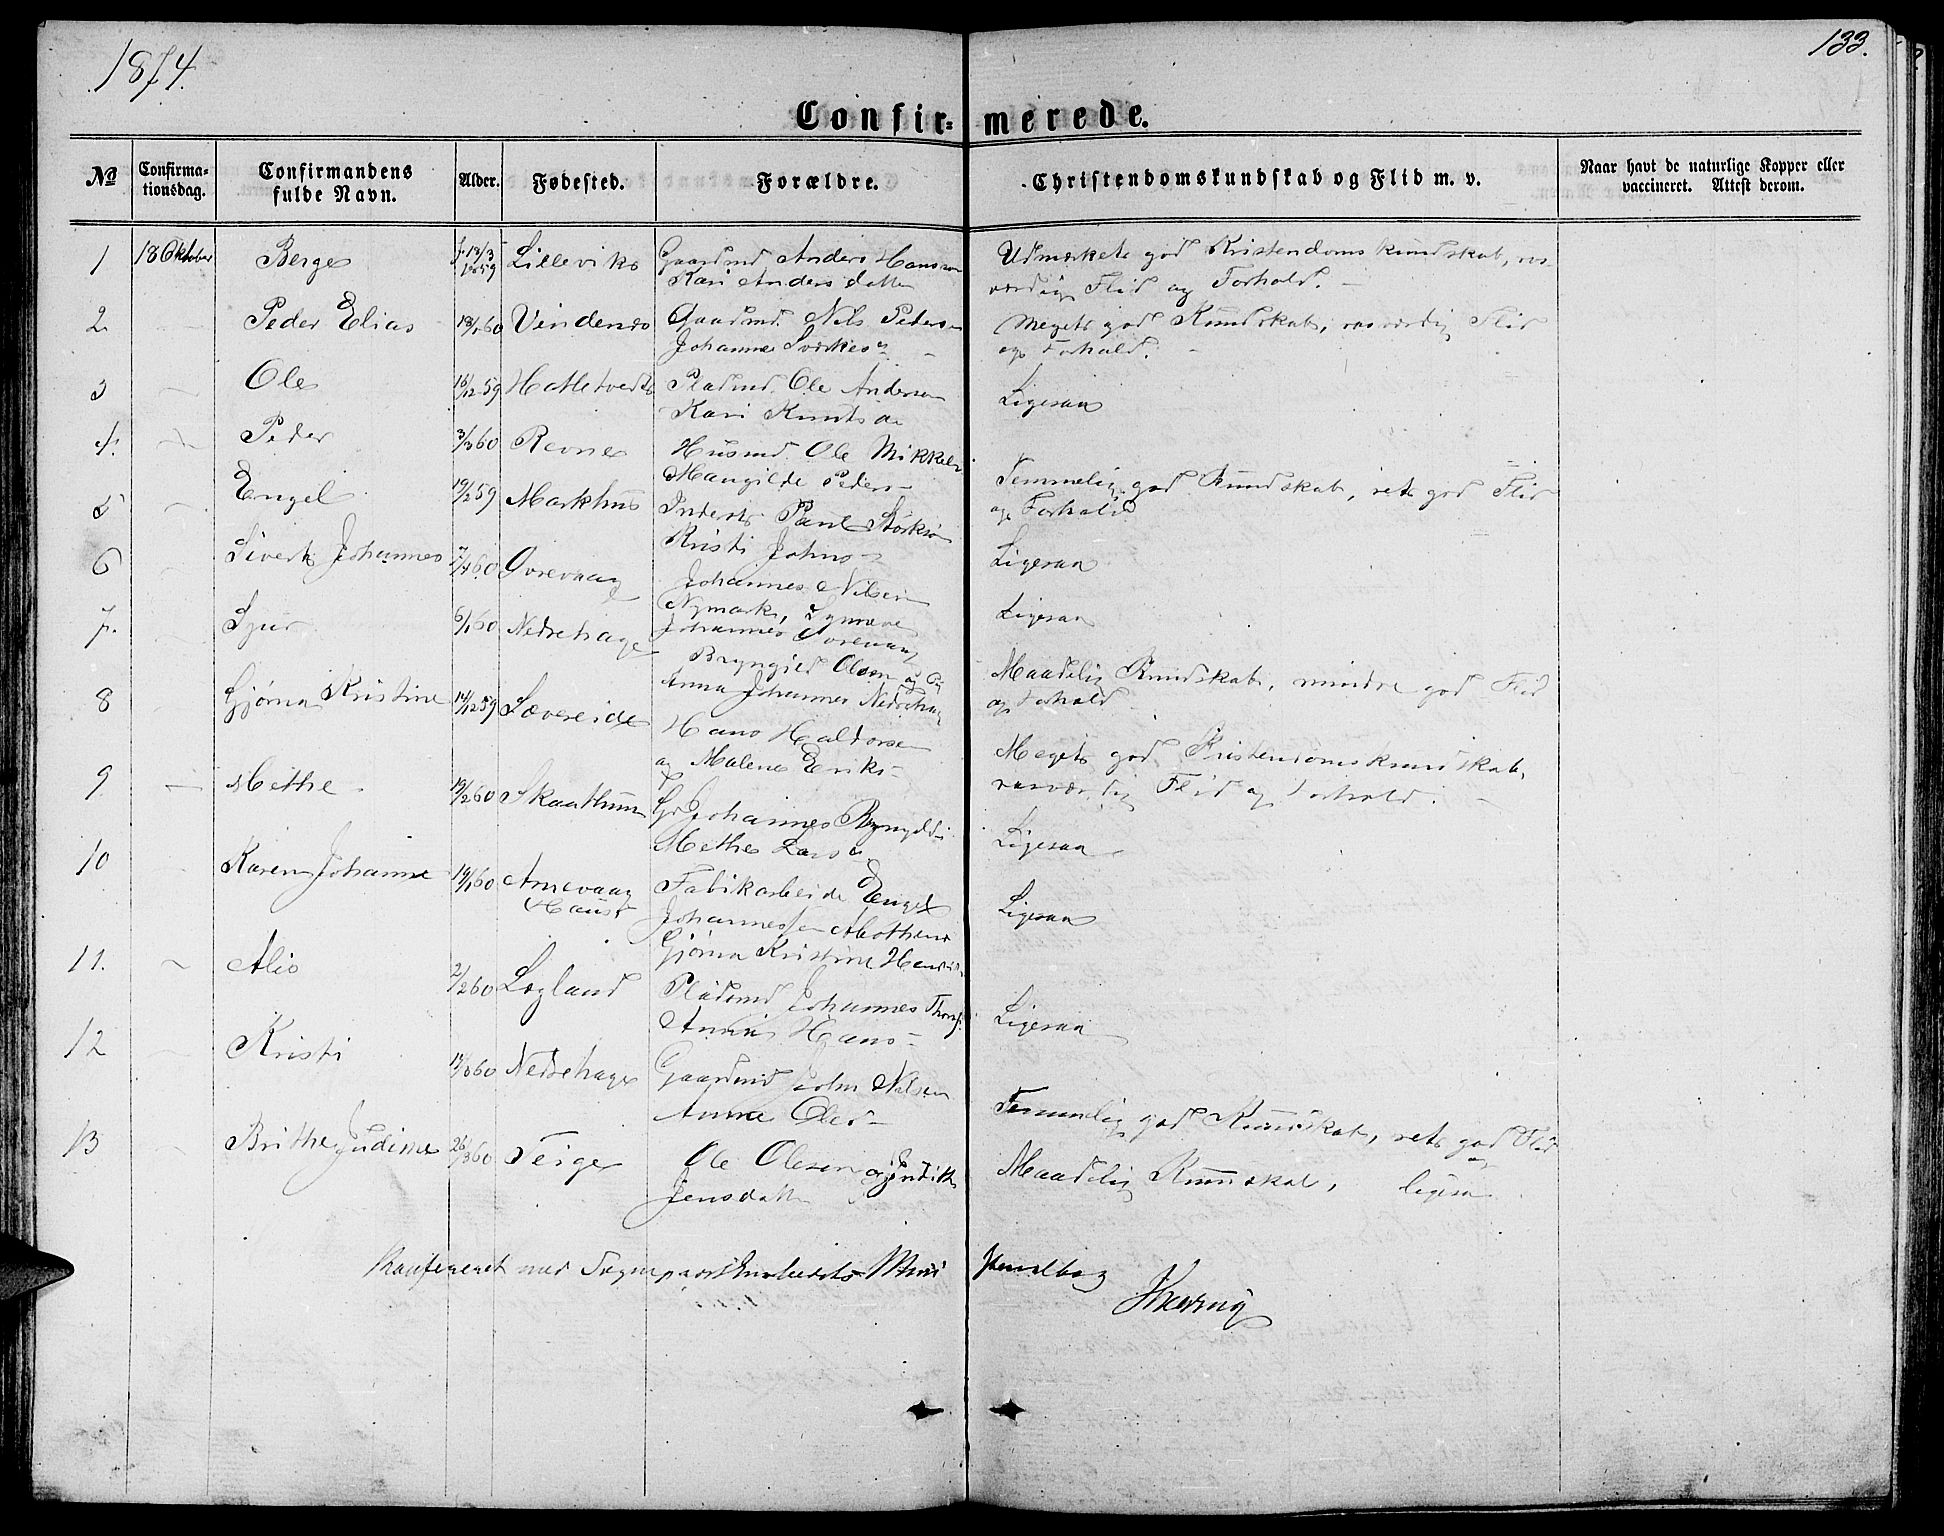 1874.
133.
Confir= merede.
No
Confirma-
tionsdag.
Confirmandens
fulde Navn.
Alder.
Fødested.
Forældre.
Christendomskundskab og Flid m. v.
Naar havt de naturlige Kopper eller
vaccineret. Attest derom.
1 18 Oktober Berge f. 18/3 1859 Lillevik Gaardmd Anders Hansen Udmærket god Kristendomskundskab, ros-
Kari Andersdatter værdig Flid og Forhold. -
2 Peder Elias 18/1 60 Vindenes Gaardmd. Nils Peders- Meget god Kundskab, rosværdig Flid
Johanne og Forhold. -
3 Ole 16/12 59 Hatletvedt Pladsmd. Ole Andersen Ligesaa
Kari Knuts
4. Peder 3/3 60 Revne Husmd. Ole Mikkels
Mangilde Peders- Temmelig god Kundskab, ret god Flid
5 Engel 19/2 59 Markhus Inderst Paul og Forhold
Kristi Johns-
6 Sivert Johannes 7/4 60 Ovrevaag Johannes Nilsen Ligesaa
Nymark,
7. Sjur 6/1 60 Nedrehage Johannes Ovrevaag Ligesaa
Bryngild Olsen og
Anna Johannes Nedrehag
8 Gjørua Kristine 14/12 59 Sævereide Hans Haldorsen Maadelig Kundskab, mindre god Flid
og Malene Eriks- og Forhold
9 Methe 19/2 60 Skaathun Johannes Meget god Kristendomskundskab,
Methe Lars rosværdig Flid og Forhold. -
10 Karen Johanne 19/1 60 Arnevaag Fabikarbeide Engel Ligesaa
Haus Johannessen
Gjørua Kristine Ligesaa
11. Alis 2/2 60 Løgland Pladsmd Johannes
Anna Hans- Ligesaa
12 Kristi 60 Nedrehage Gaardmd John Nilsen
Anna Oles- Temmelig god Kundskab, ret god Flid
13 Brithe Judithe 26/3 60 Teige Ole Olsen og Judith Maadelig Kundskab, ligesaa
Jensdatter
Konfereret med Sognepræst